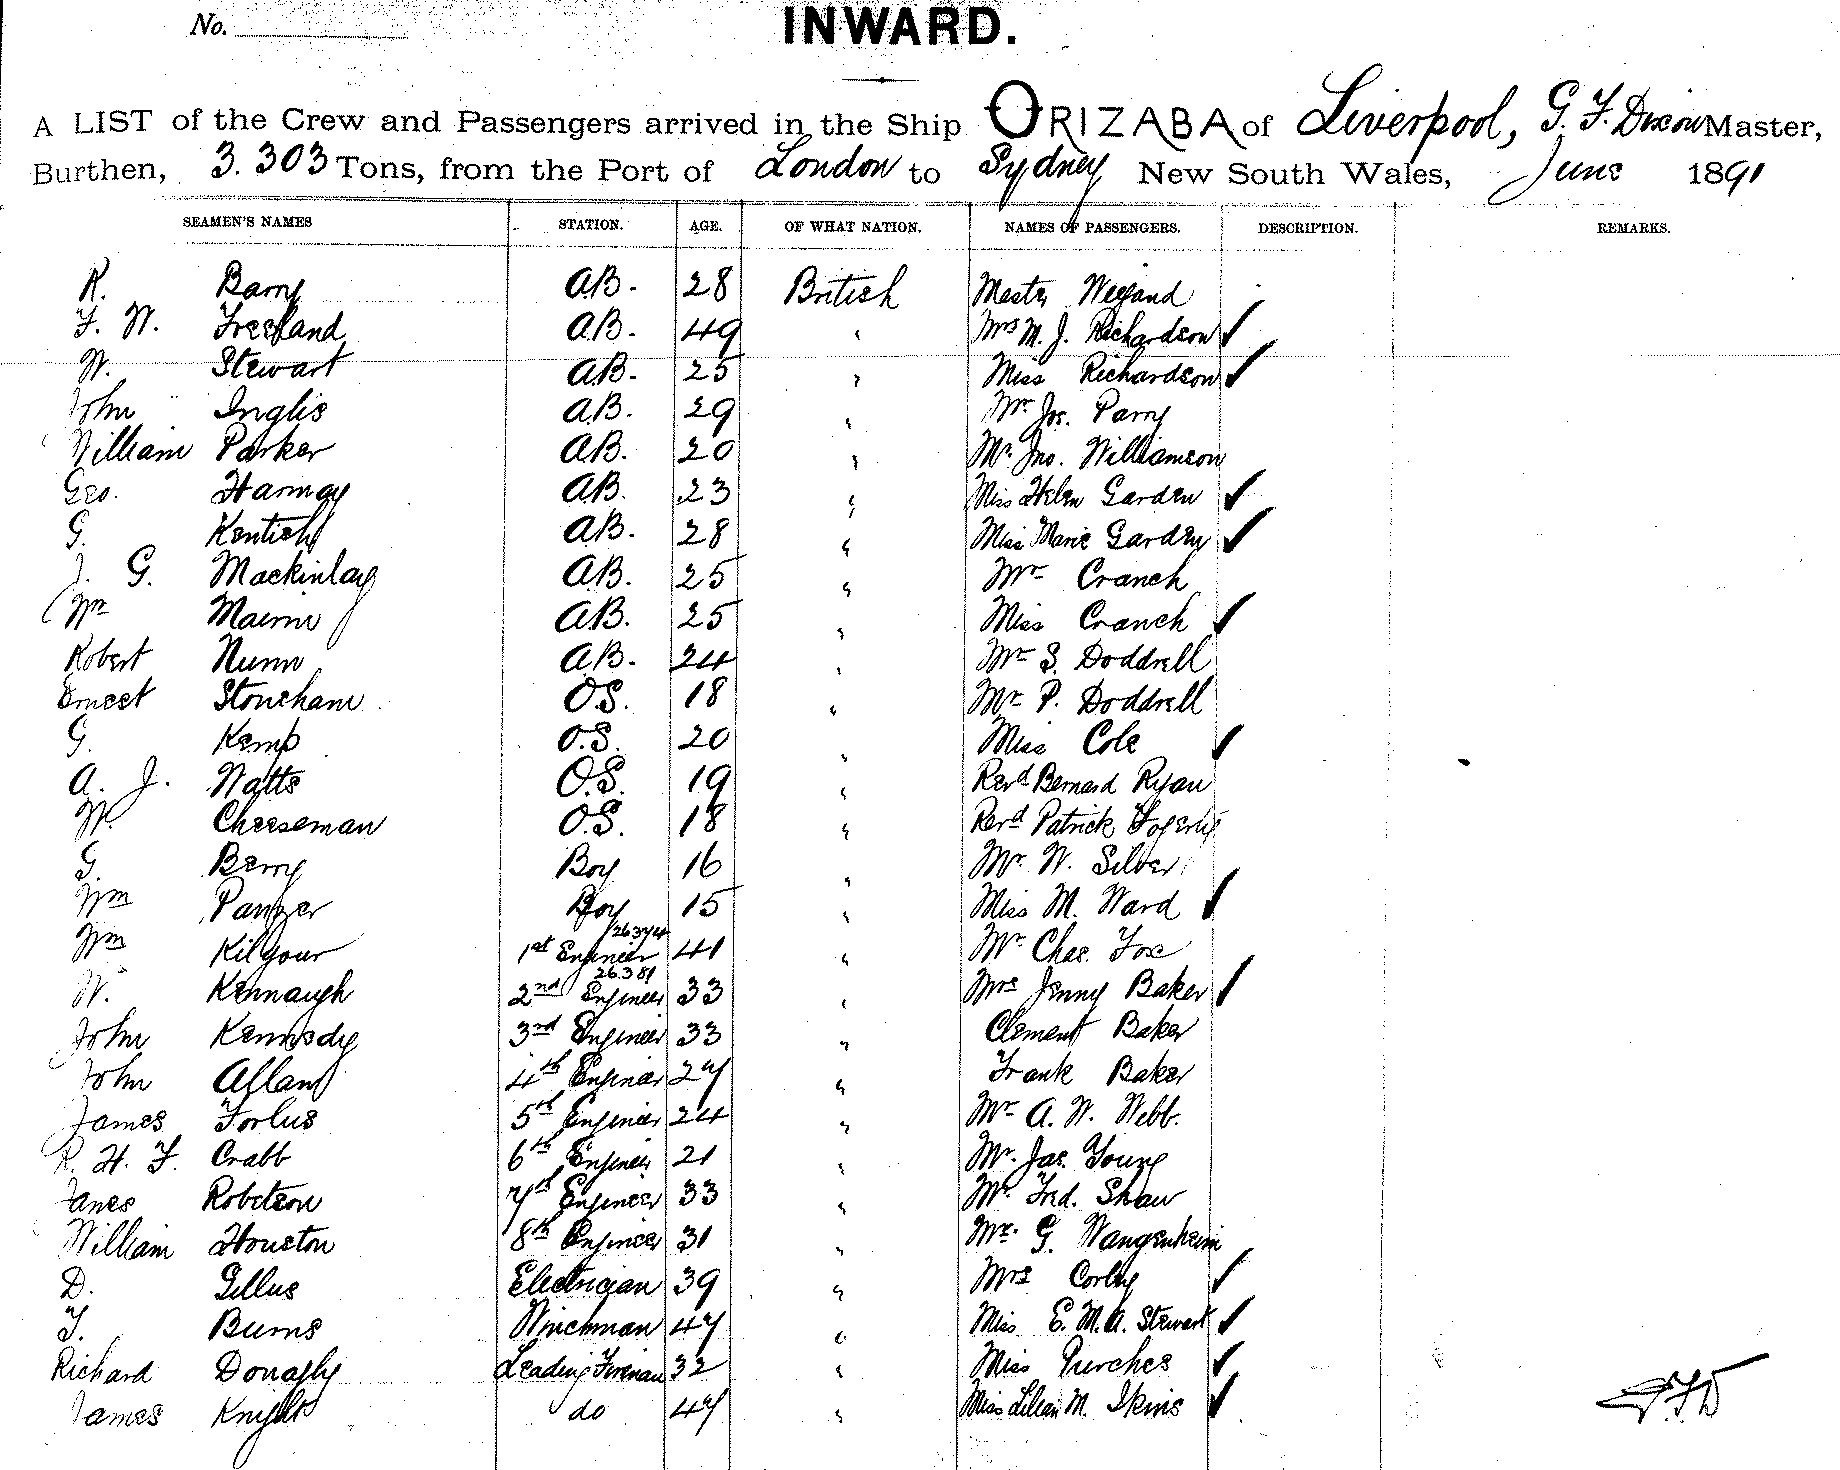 No.
INWARD.
A LIST of the Crew and Passengers arrived in the Ship ORIZABA of Liverpool, G. F. Dixon Master,
Burthen, 3.303 Tons, from the Port of London to Sydney New South Wales, June 1891
SEAMEN'S NAMES STATION. AGE. OF WHAT NATION. NAMES OF PASSENGERS. DESCRIPTION. REMARKS.
R. Barry A.B. 28 British Master Weigand
F. W. Freeland A.B. 49 " Mrs M. J. Richardson ✓
W. Stewart A.B. 25 " Miss Richardson ✓
John Inglis A.B. 29 " Mr Jos. Parry
William Parker A.B. 20 " Mr Jno. Williamson
Geo. Harmay A.B. 23 " Miss Helen Garden ✓
G. Kentish A.B. 28 " Miss Marie Garden ✓
J. G. Mackinlay A.B. 25 " Mr Cranch
Wm A.B. 25 " Miss Cranch ✓
Robert Nunn A.B. 24 " Mr S. Doddrell
Ernest Stoneham O.S. 18 " Mr P. Doddrell
G. Kemp O.S. 20 " Miss Cole ✓
A. J. Watts O.S. 19 " Revd Bernard Ryan
W. Cheeseman O.S. 18 " Revd Patrick Fogerty
G. Berry Boy 16 " Mr W. Silver
Wm Panzer Boy 15 " Miss M. Ward ✓
Wm Kilgour 1st Engineer 26374 41 " Mr Chas. Fox
W. Kennaugh 2nd Engineer 26381 33 " Mrs Jenny Baker ✓
John Kennedy 3rd Engineer 33 " Clement Baker
John Allan 4th Engineer 27 " Frank Baker
James Forbes 5th Engineer 24 " Mr A. W. Webb.
R. H. F. Crabb 6th Engineer 21 " Mr. Jas. Young
James Robertson 7th Engineer 33 " Mr. Fred. Shaw
William Houston 8th Engineer 31 " Mr. G. Wangenheim
D. Gellus Electrician 39 " Mrs Corley ✓
T. Burns Winchman 47 " Miss E. M. A. Stewart ✓
Richard Donaghy Leading Fireman 32 " Miss Purches ✓
James Knight do 47 " Miss Lilian M. Ikins ✓
G.F.D